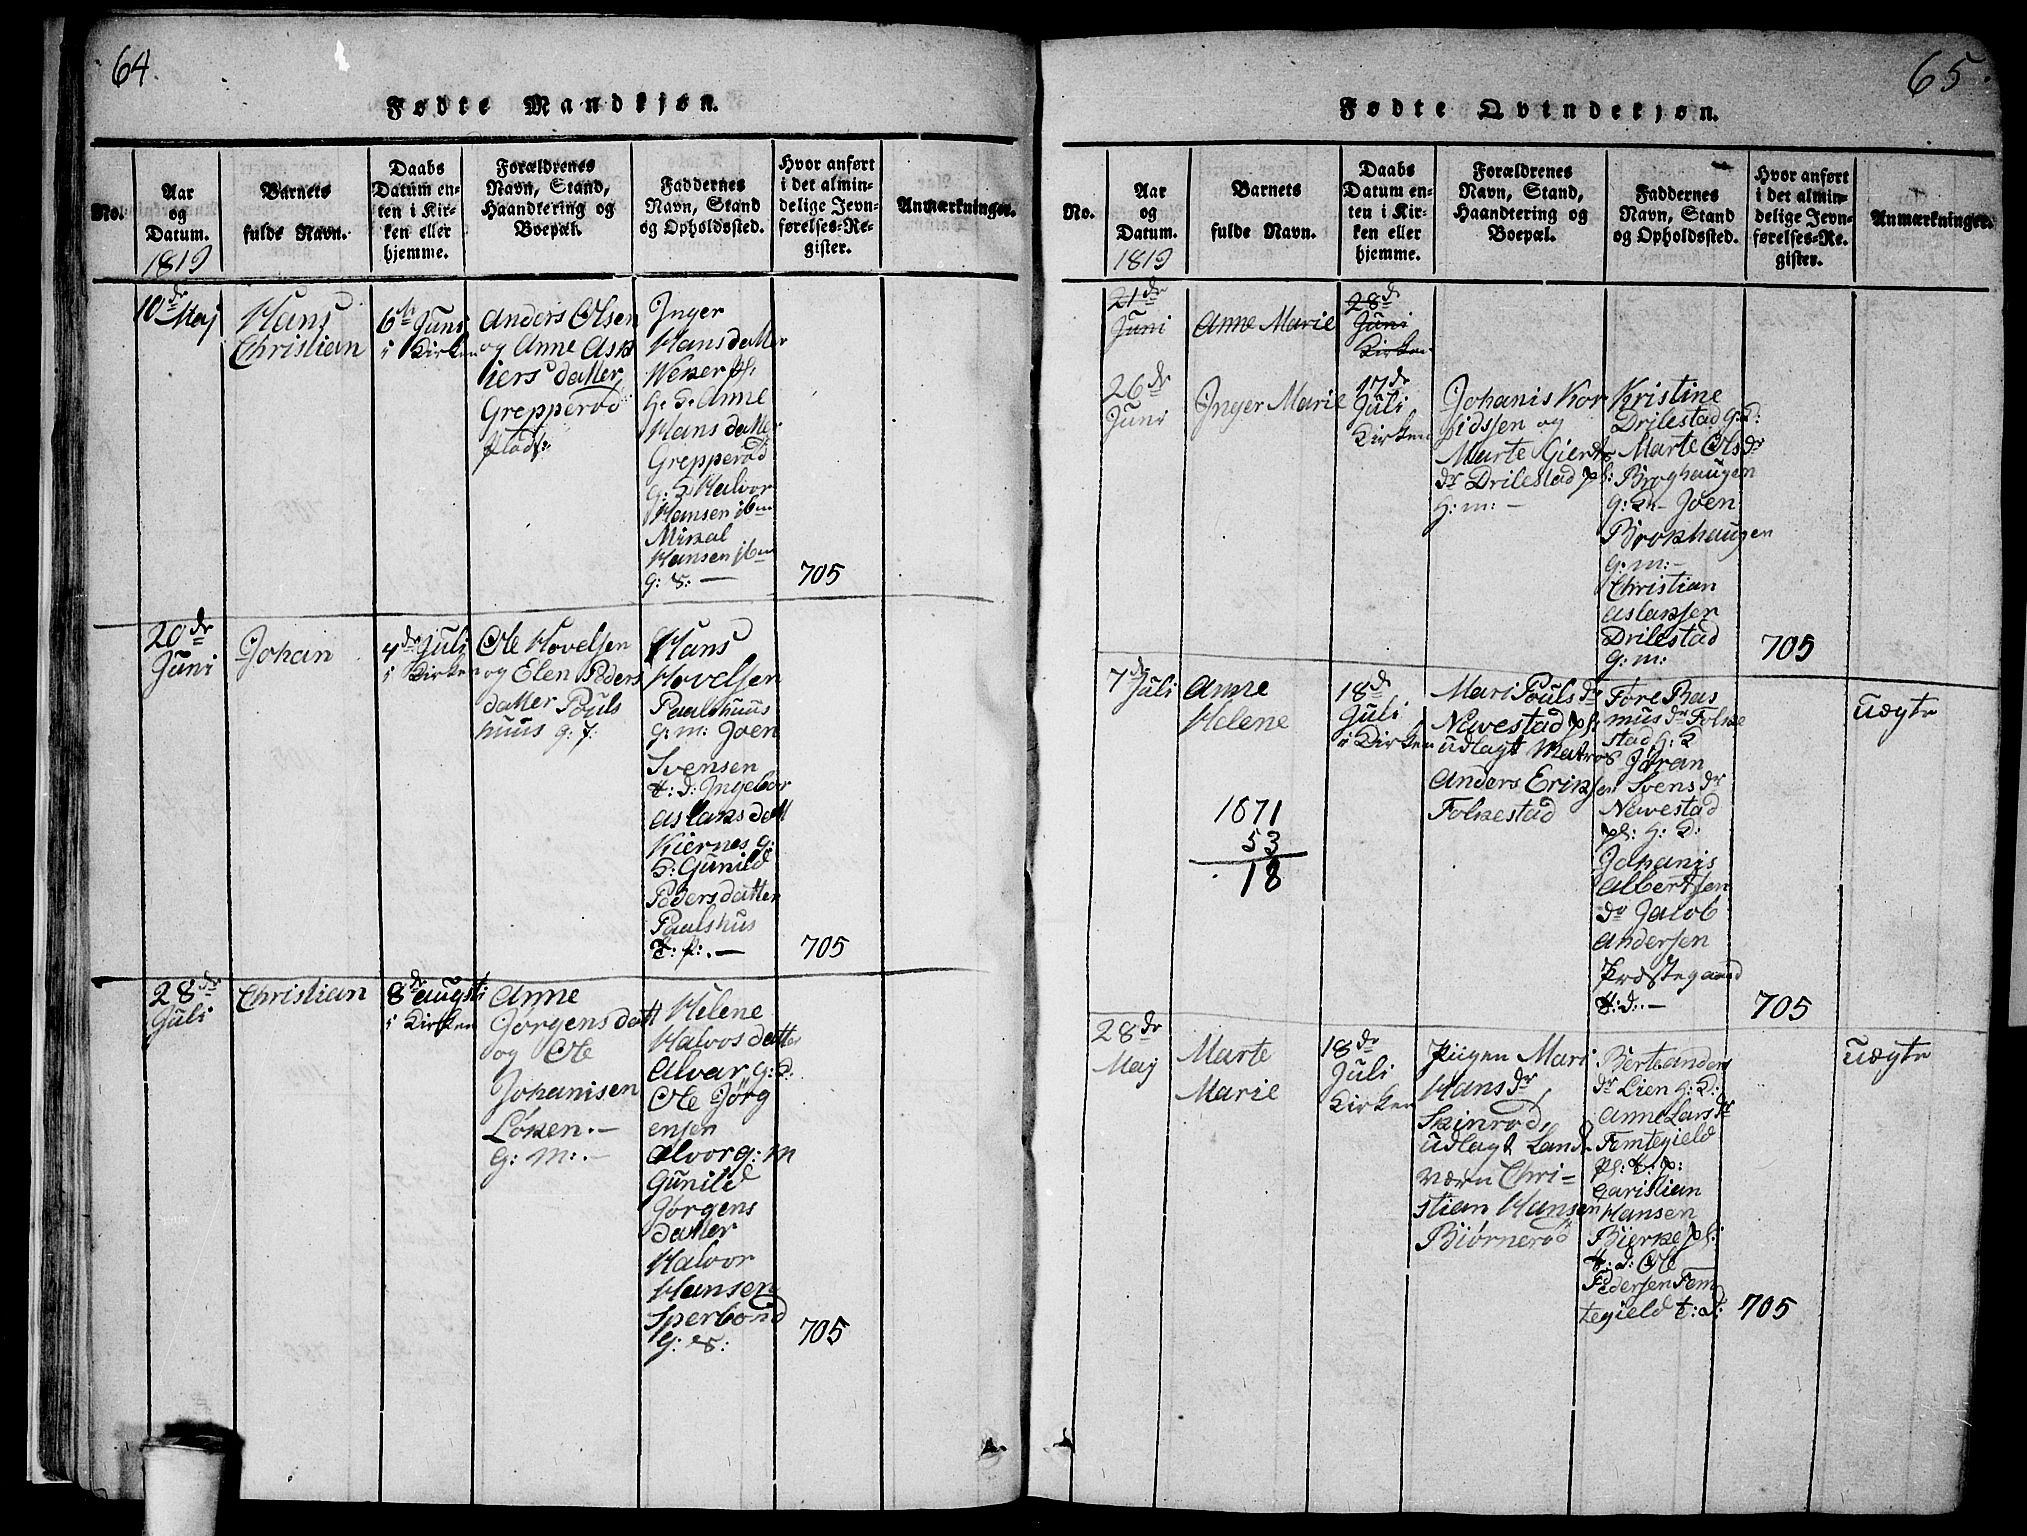 64.
Fødte Mandkjøn.
No.
Aar
og
Datum.
1819
Barnets
fulde Navn.
Daabs
Datum en-
ten i Kir-
ken eller
hjemme.
Forældrenes
Navn, Stand,
Haandtering og
Boepæl.
Faddernes
Navn, Stand
og Opholdssted.
Hvor anført
i det almin-
delige Jevn-
førelses-Re-
gister.
Anmærkninger.
10de Maj
Hans
Christian
6te Juni
i Kirken
Anders Olsen
og Anne Ask
iers datter
Grepperød
plads:
Inger
Hansdatter
g: Anne
Hansdatter
Grepperød
Halvor
Hansen ibm
Mikal
Hansen ibm
g: S: —
705
20de
Juni
Johan
4de Juli
i Kirken
Ole Hovelsen
og Elen Peders
datter Pouls
huus g: f:
Hans
Hovelsen
Paalshuus
g: m: Joen
Svensen
t: d: Ingebor
Aslaksdatt
Kiernes g:
Gunild
Pedersdatter
Paalshus
t: p: —
705
28de
Juli
Christian
8de Augsti
i Kirken
Anne
Jørgensdatt
og Ole
Johanisen
Løken. —
g: m: —
Helene
Halvosdatter
Alvar g: d:
Ole Jørg
ensen
Alvor g: m
Gunild
Jørgens
datter
Halvor
Hansen
Sperbond
g: S:
705
65.
Fødte Qvindekjøn.
No.
Aar
og
Datum.
1819
Barnets
fulde Navn.
Daabs
Datum en-
ten i Kir-
ken eller
hjemme.
Forældrenes
Navn, Stand,
Haandtering og
Boepæl.
Faddernes
Navn, Stand
og Opholdssted.
Hvor anført
i det almin-
delige Jevn-
førelses-Re-
gister.
Anmærkninger.
21de
Juni
Anne Marie
28de
Juni
Kirken
26de
Juni
Inger Marie
17de
Juli
Kirken
Johanis Kor
sidssen og
Marte Gierts
dr Drilestad pl:
h: m: —
Kristine
Drilestad g: d:
Marte Olsdr
Broghaugen
g: d: — Joen
Brokhaugen
g: m: —
Christian
Aslaksen
Drilestad
g: m:
705
7de Juli
Anne
Helene
1871
53
18
18de
Juli
i Kirken
Mari Pouls dr
Newestad pl:
udlagt Matros
Anders Eriksen
Folkestad
Tore Ras
mus dr Folke
stad h: d
Jøran
Svens dr
Newestad
pl: h: d:
Johanis
Albertsen
do Jacob
Andersen
Præstegaard
t: d: —
705
uægte
28de
Maj
Marte
Marie
18de
Juli
Kirken
Piigen Mari
Hans dr,
Skinrød,
udlagt Land
værn Chri-
stian Hansen
Biørnerød
Berte Anders
dr Lien h: d:
Anne Lars dr
Femtegield
pl: t: p:
Christian
Hansen
Bierke pl:
t: d: Ole
Pedersen Fem
tegield t: d:
705
uægte